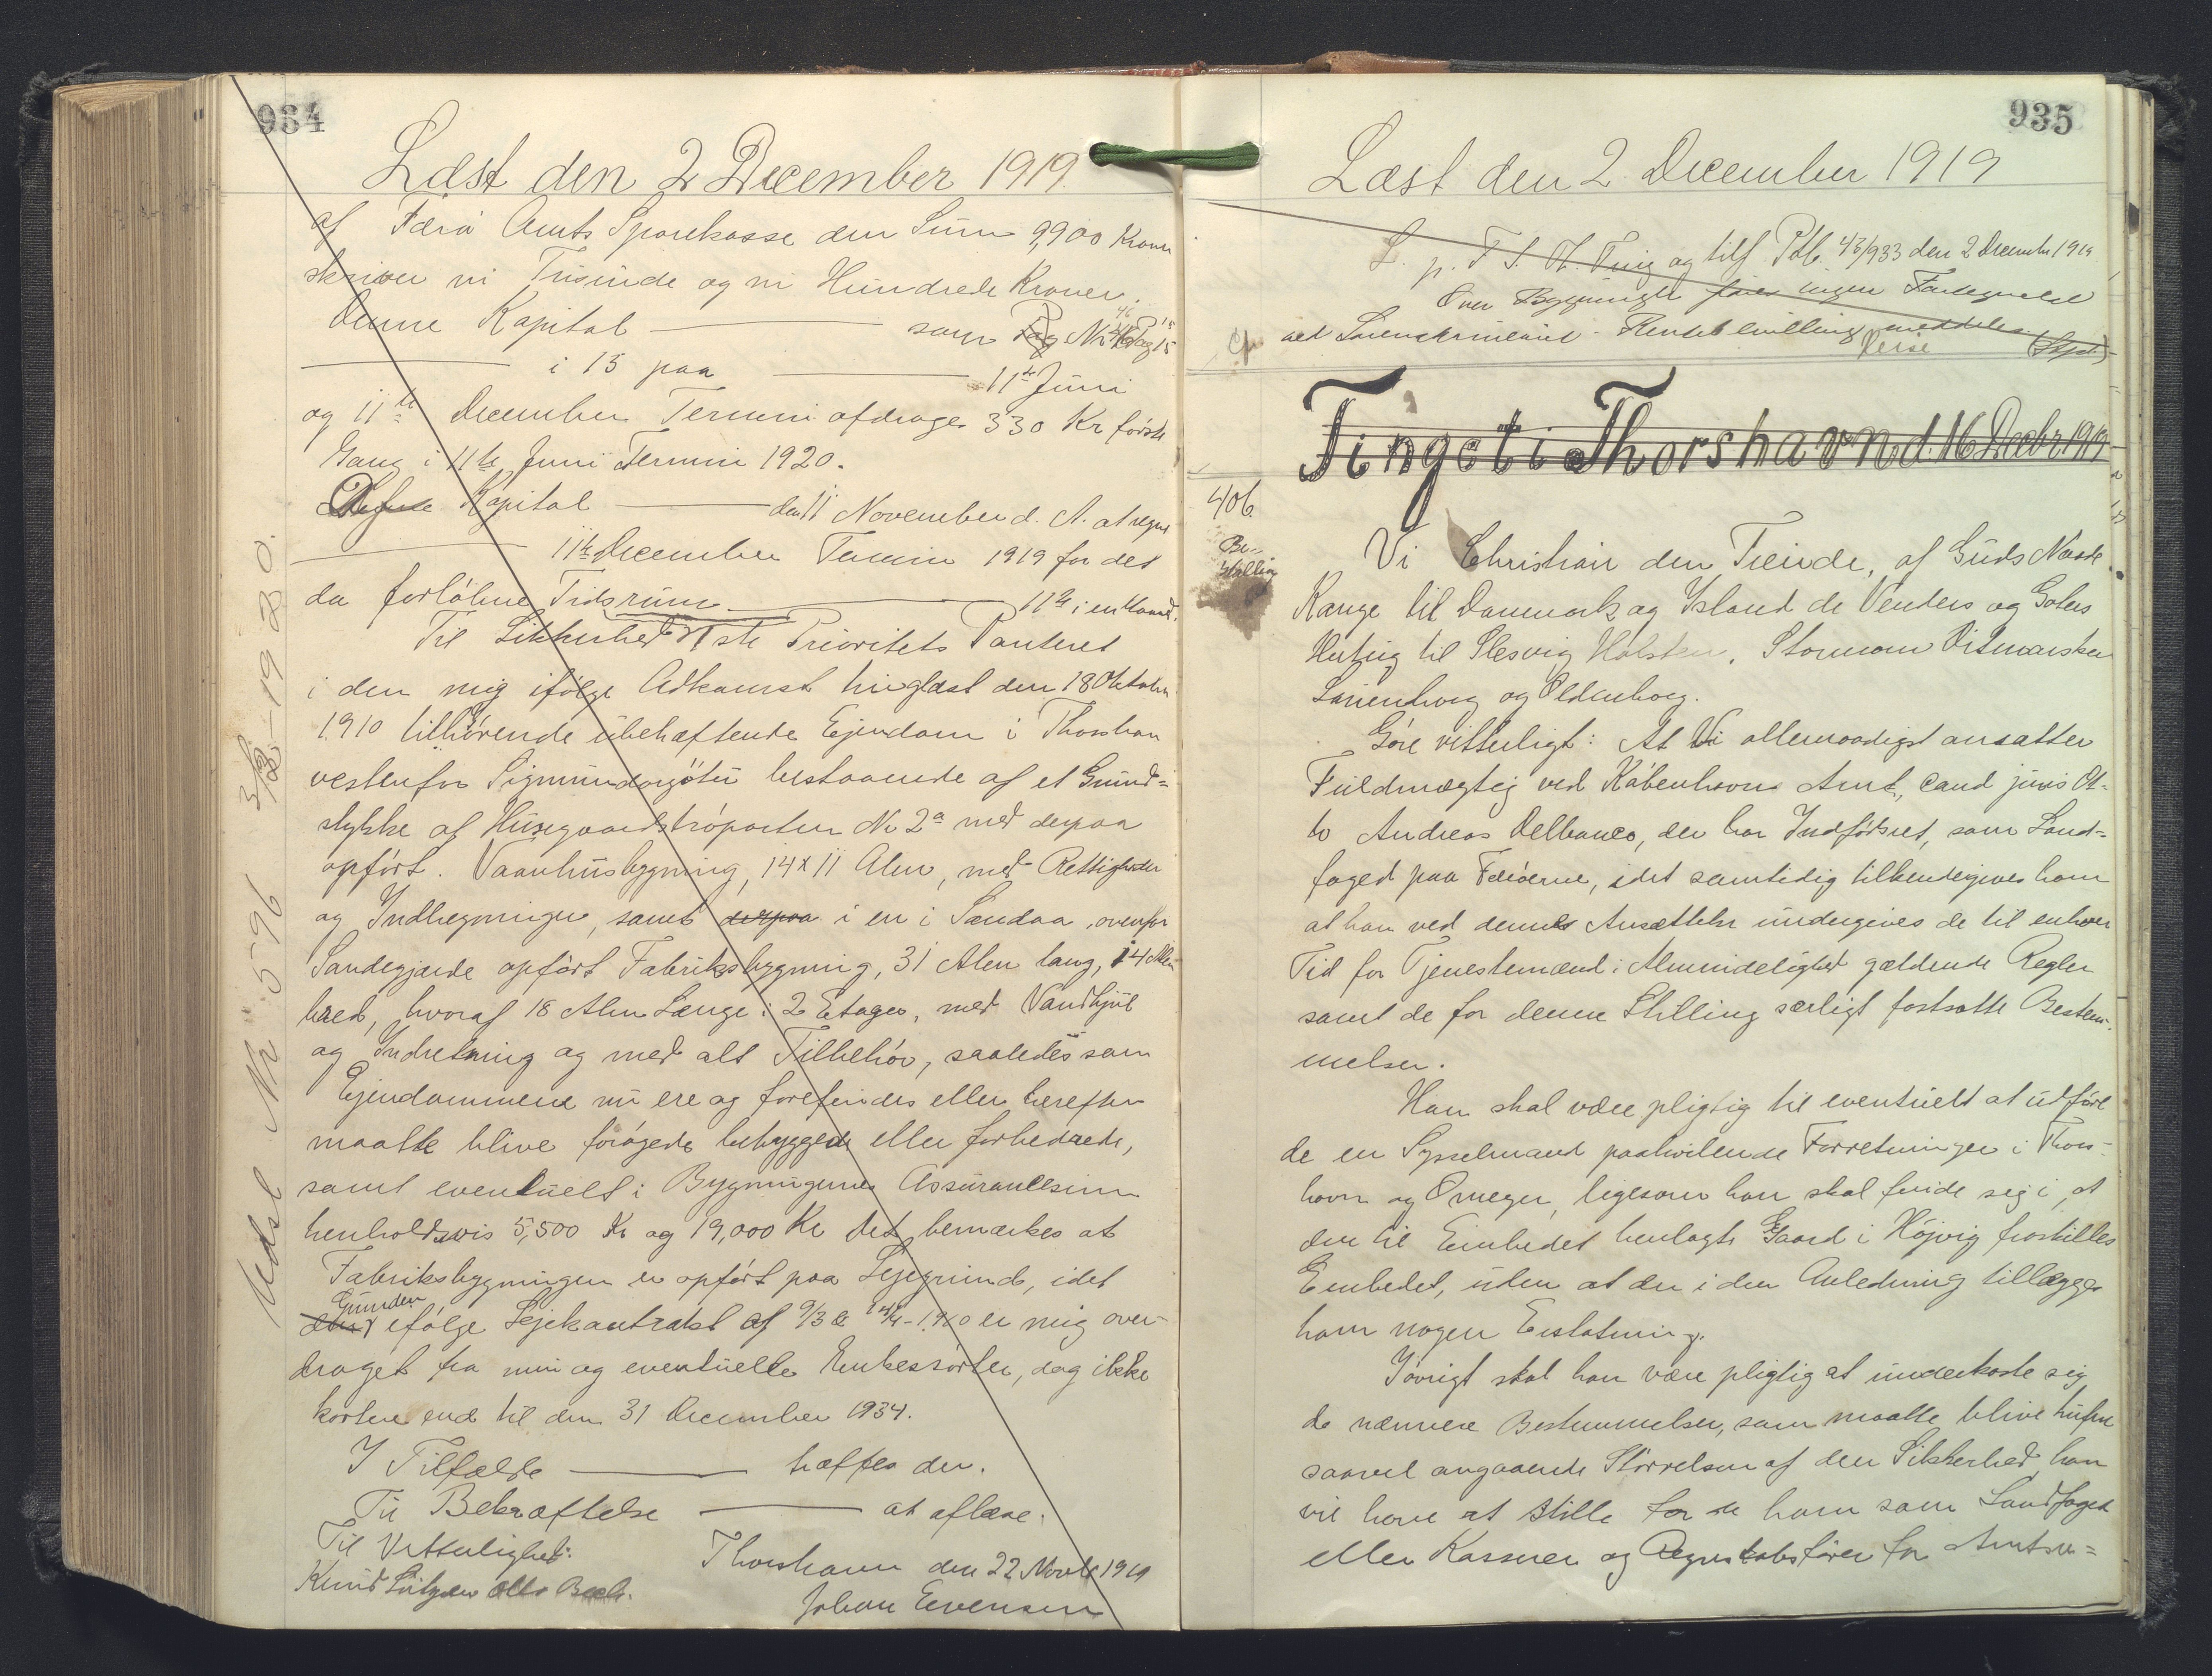 934
Læst den 2 December 1919
af Færø Amts Sparekasse den Sum 9,900 Kroner
skriver ni Tusinde og ni Hundrede Kroner.
Denne Kapital — som
— i 15 paa — 11te Juni
og 11te December Termin afdrages 330 Kr første
Gang i 11te Juni Termin 1920.
Kapital — den 11 November d. A. at regne
— 11te December Termin 1919 for det
da forløbne Tidsrum — 11te i en Hver
Til Sikkerhed 1ste Prioritets Panteret
i den mig ifølge Adkomst tinglæst den 18 Oktober
1910 tilhørende ubehæftende Ejendom i Thorshavn
vestenfor Sigmundargøtu bestaaende af et Grund=
stykke af Husegaardstróparten No 2a med derpaa
opført. Vaanhusbygning, 14 x 11 Alen, med Rettigheder
og Indhegninger, samt derpaa i en i Sandaa, ovenfor
Sandegjærde opført Fabriksbygning, 31 Alen lang, 14 Alen
bred, hvoraf 18 Alen Længe i 2 Etager, med Vandhjul
og Indretning og med alt Tilbehør, saaledes som
Ejendommene nu ere og forefindes eller herefter
maatte blive forøgede bebyggede eller forbedrede,
samt eventuelt i Bygningernes Assurancesum
henholdsvis 5,500 Kr og 19,000 Kr Det bemærkes at
Fabriksbygningen er opført paa Lejegrund, idet
Grunden
ifølge Lejekontrakt af 9/3 & 14/4-1910 er mig over-
draget fra min og eventuelle Enkes side, dog ikke
kortere end til den 31 December 1934.
I Tilfælde — hæftes der.
Til Bekræftelse — at aflæse.
Til Vitterlighed: Thorshavn den 22 Novb 1919
Knud Otto Bech. Johan Evensen
Nr 5596
935
Læst den 2 December 1919
L. p. F. S. H. Ting og tilf Ptb. 43/933 den 2 December 1919
Over Bygningen føres ingen Fortegnelse
ved Sorenskriveriet - meddeles
Tinget i Thorshavn d. 16 Decbr 1919
406.
Be-
stilling
Vi Christian den Tiende, af Guds Naade
Konge til Danmark og Island de Venders og Goters
Hertug til Slesvig Holsten, Stormarn Ditmarsken
Lauenborg og Oldenborg.
Gøre vitterligt: At Vi allernaadigst ansætter
Fuldmægtig ved Københavns Amt, cand juris Ot-
to Andreas Delbanco, der har Indfødsret, som Land=
foged paa Færøerne, idet samtidig tilkendegives ham
at han ved dennes Ansættelse undergives de til enhver
Tid for Tjenestemænd i Almindelighed gældende Regler
samt de for denne Stilling særligt fastsatte Bestem-
melser.
Han skal være pligtig til eventuelt at udføre
de en Sysselmand paahvilende Forretninger i Thors-
havn og Omegn, ligesom han skal finde sig i, at
den til Embedet henlagte Gaard i Højvig fraskilles
Embedet, uden at der i den Anledning tillægges
ham nogen Erstatning.
Iøvrigt skal han være pligtig at underkaste sig
de nærmere Bestemmelser, som maatte blive trufne
saavel angaaende Størrelsen af den Sikkerhed, han
vil have at stille for de ham som Landfoged
eller Kasserer og Regnskabsfører for Amtsre=